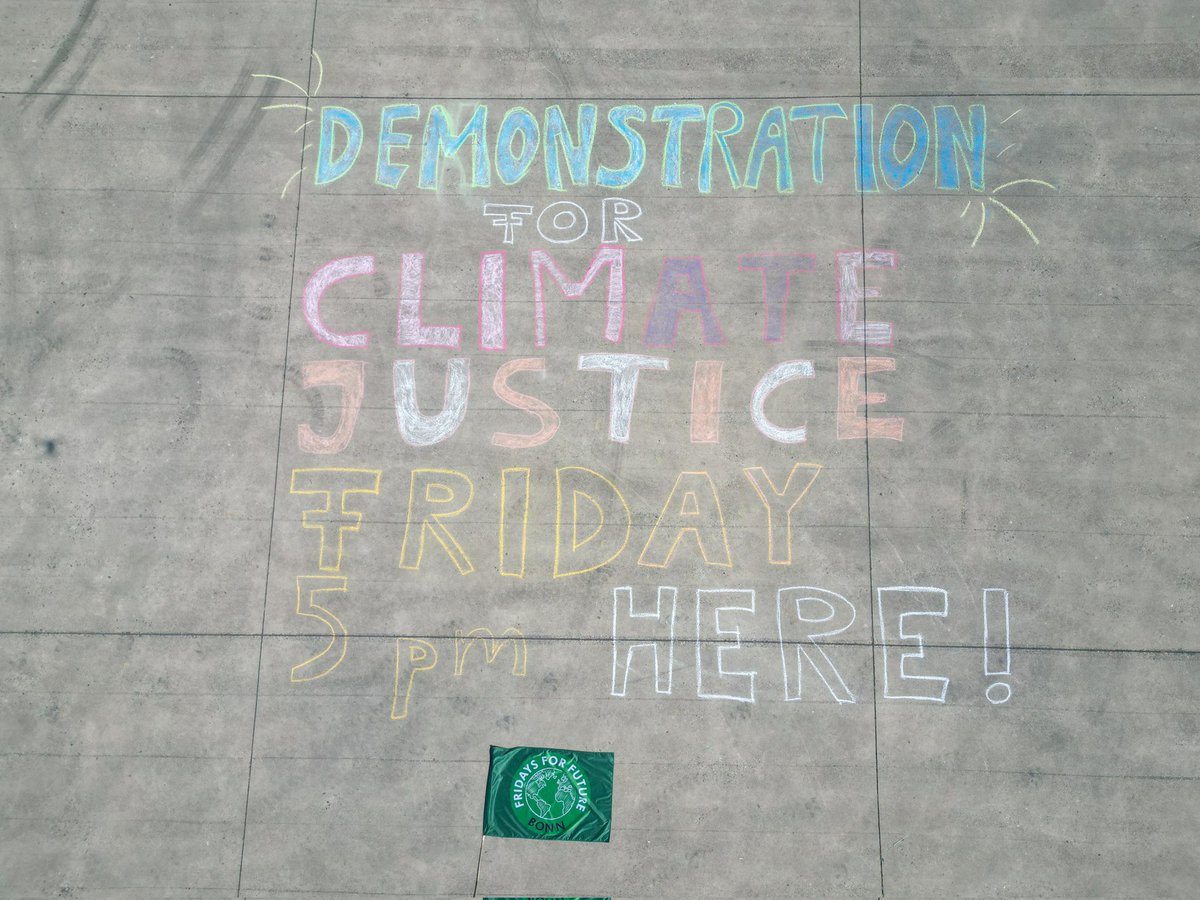 DEMONSTRATION
FOR
CLIMATE
JUSTICE
FRIDAY
5 pm HERE!
FRIDAYS FOR FUTURE
BONN